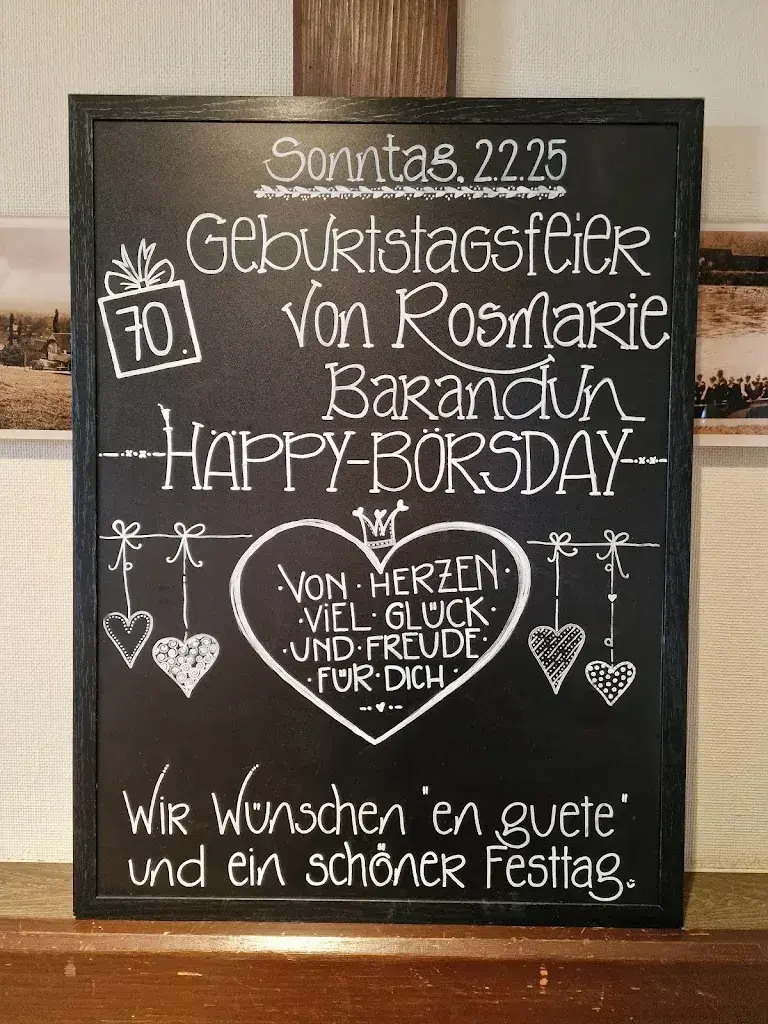 Sonntag. 2.2.25
Geburtstagsfeier
70.
von Rosmarie
Barandun
HÄPPY-BÖRSDAY
VON · HERZEN
· VIEL · GLÜCK ·
· UND · FREUDE ·
· FÜR · DICH ·
Wir Wünschen "en guete"
und ein schöner Festtag.